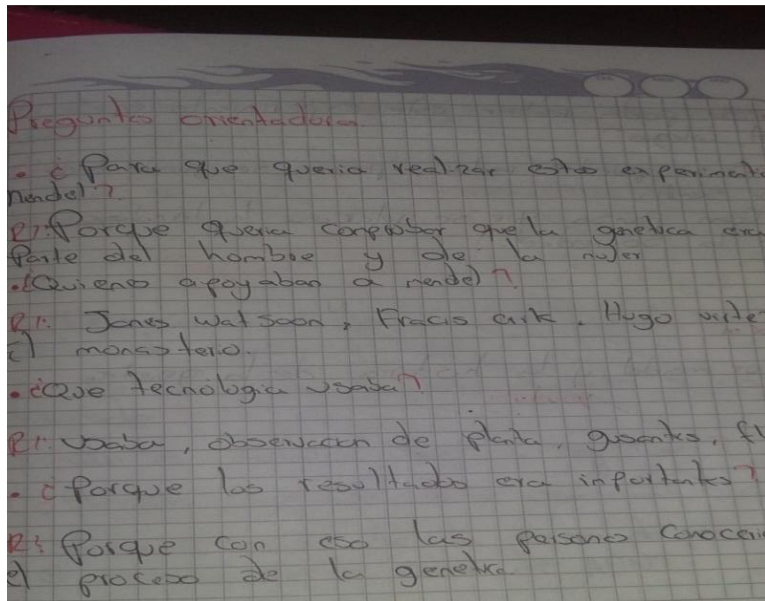 Preguntas orientadoras
• ¿Para que queria realizar estos experiment
mendel?
R/: Porque queria comprobar que la genetica era
Parte del hombre y de la mujer
• ¿Quienes apoyaban a mendel?
R/: James Watsoon, Fracis crik, Hugo
el monasterio.
• ¿Que tecnologia usaba?
R/: usaba, observacion de planta, gusanitos, f
• ¿Porque los resultados era importantes?
R/: Porque con eso las personas conoceri
el proceso de la genetica